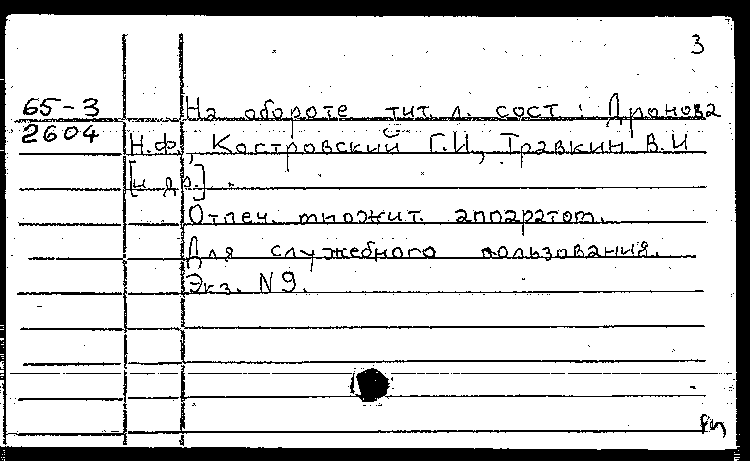 3
65-3
2604
На обороте тит. л. сост: Дронова
Н.Ф., Костровский Г.И, Травкин В.И
[и др.].
Отпеч. множит. аппаратом.
Для служебного пользования.
Экз. N9.